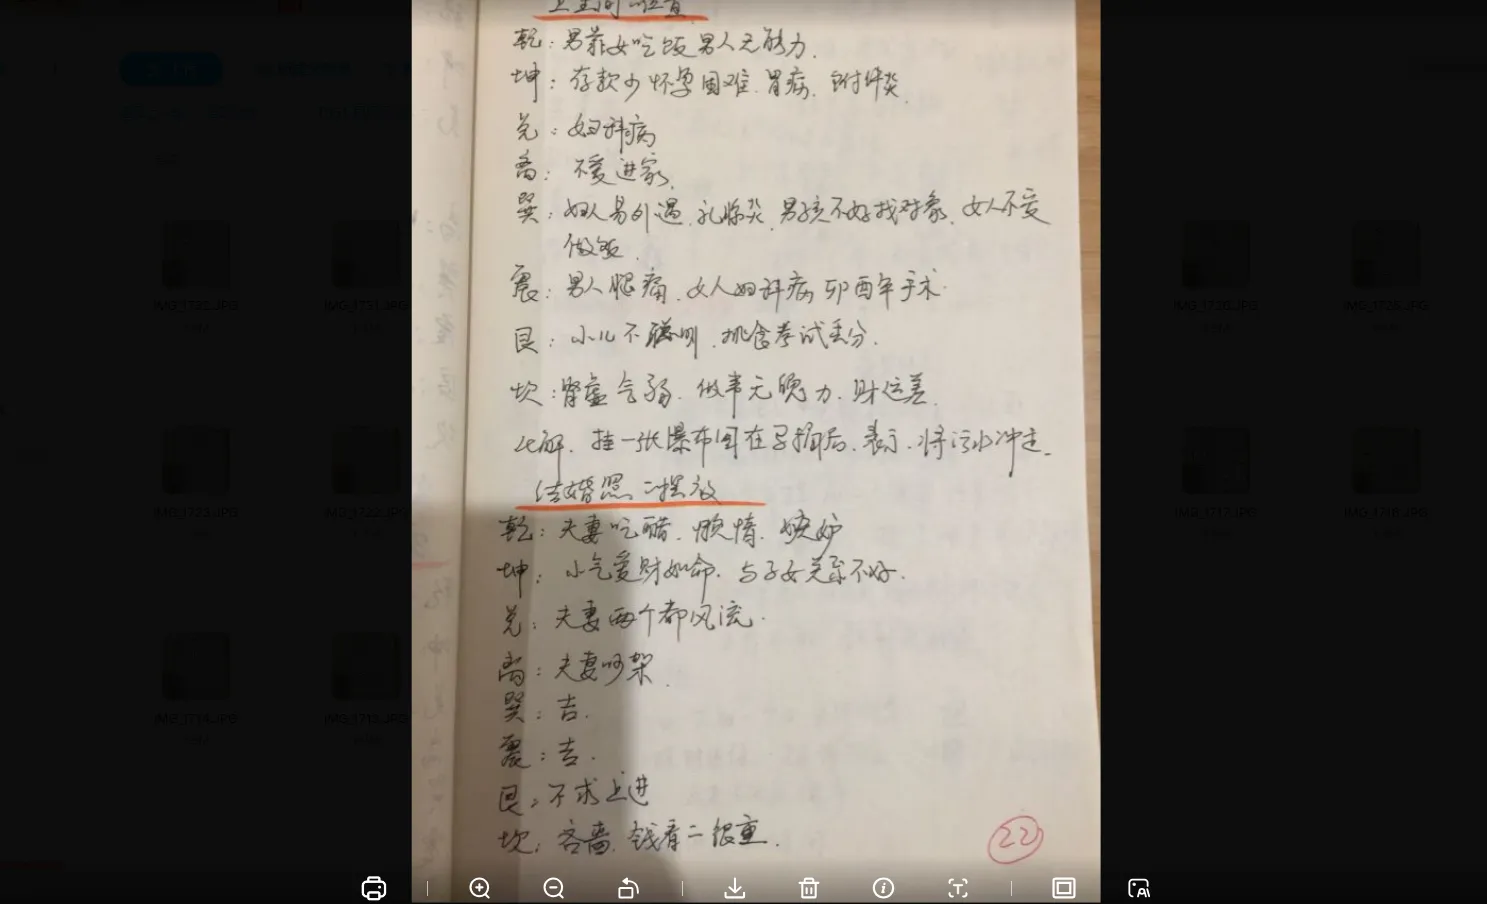 卫生间位置
乾：男靠女吃饭男人无能力.
坤：存款少怀孕困难.胃病.附件炎.
兑：妇科病
离：不爱进家.
巽：妇人易外遇.乳腺炎.男孩不好找对象.女人不爱
做饭.
震：男人腿痛.女人妇科病卯酉年手术.
艮：小儿不聪明.挑食考试丢分.
坎：肾虚气弱.做事无魄力.财运差.
化解.挂一张瀑布图在马桶后.表示.将污水冲走.
结婚照二摆放
乾：夫妻吃醋.懒惰.嫉妒
坤：小气爱财如命.与子女关系不好.
兑：夫妻两个都风流.
离：夫妻吵架.
巽：吉.
震：吉.
艮：不求上进
坎：吝啬.钱看二很重.
22
IMG_1722.JPG
IMG_1717.JPG
IMG_1716.JPG
IMG_1714.JPG
IMG_1713.JPG